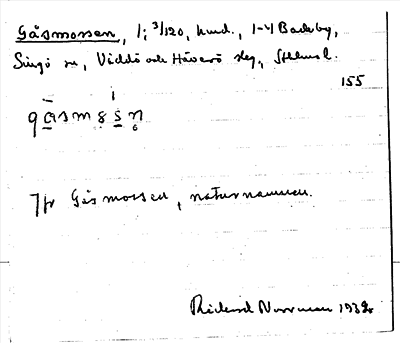 Gåsmossen, 1; 3/120, hmd., 1-4 Backby,
Singö sn, Väddö och Häverö skg, Sthlms l.
155
gåsmosn
Jfr Gåsmossen, naturnamnen.
Rickard Norrman 1932